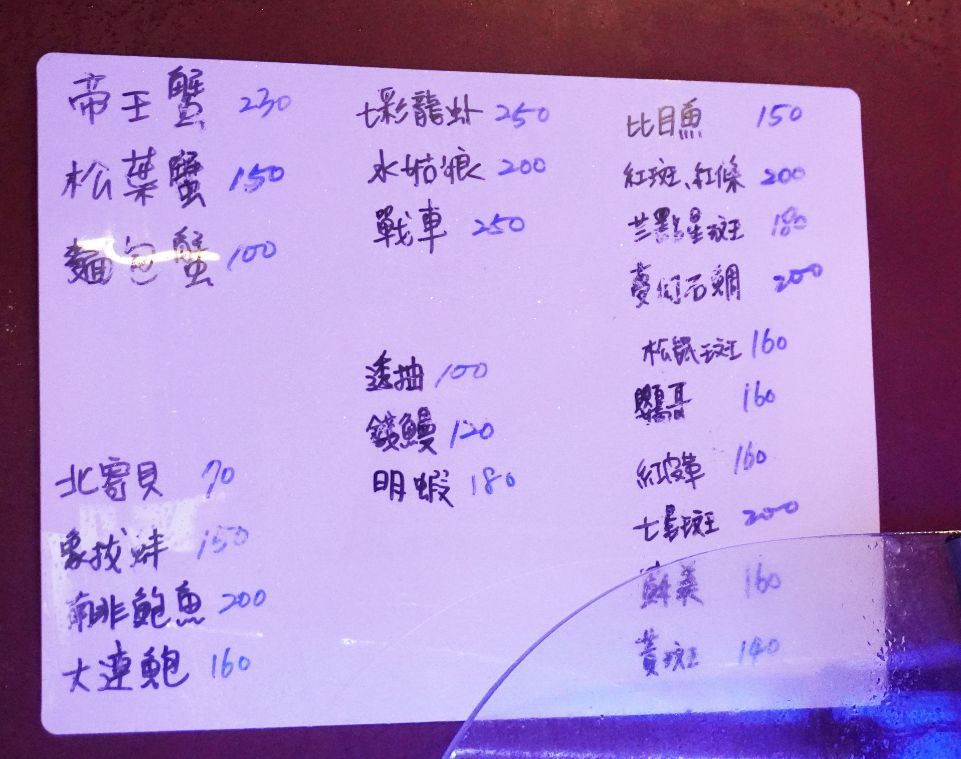 帝王蟹 230
松葉蟹 150
麵包蟹 100
北寄貝 70
象拔蚌 150
南非鮑魚 200
大連鮑 160
七彩龍虾 250
水姑娘 200
戰車 250
透抽 100
錢鰻 120
明蝦 180
比目魚 150
紅斑、紅條 200
芝麻星斑 180
夢幻石鯛 200
松鼠斑 160
鸚哥 160
紅皮革 160
七星斑 200
蘇美 160
黃斑 140